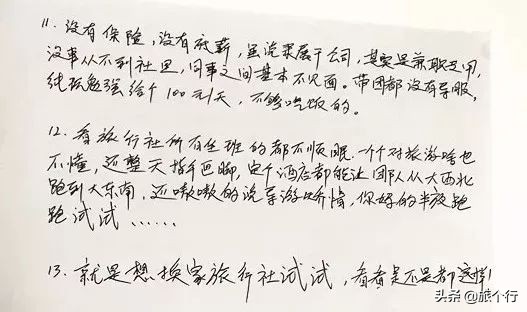 11. 没有保险，没有底薪，虽说隶属于公司，其实是兼职互用，
没事从不到社里，同事之间基本不见面。带团都没有导服，
纯玩勉强给个100元/天，不够吃饭的。
12. 看旅行社所有坐班的都不顺眼，一个个对旅游啥也
不懂，还整天指手画脚，定个酒店都能让团队从大西北
跑到大东南，还嗷嗷的说导游矫情，你妈的半夜跑
跑试试……
13. 就是想换家旅行社试试，看看是不是都这样！
头条@旅个行